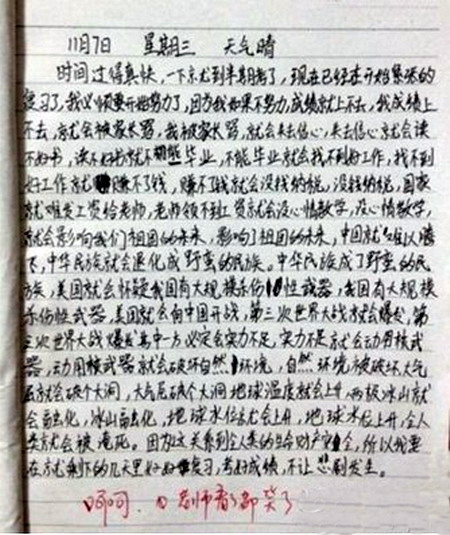 11月7日 星期三 天气晴
时间过得真快,一下就到半期考了,现在已经在开始紧张的
复习了,我必须要开始努力了,因为我如果不努力,成绩就上不去,我成绩上
不去,就会被家长骂,我被家长骂,就会失去信心,失去信心就会读
不好书,读不好书就不能毕业,不能毕业就会找不到好工作,找不到
好工作就赚不了钱,赚不了钱就会没钱纳税,没钱纳税,国家
就难发工资给老师,老师领不到工资就会没心情教学,没心情教学,
就会影响我们祖国的未来,影响了祖国的未来,中国就难以腾
飞,中华民族就会退化成野蛮的民族。中华民族成了野蛮的民
族,美国就会怀疑我国有大规模杀伤性武器,我国有大规模
杀伤性武器,美国就会向中国开战,第三次世界大战就会爆发,第
三次世界大战爆发其中一方必定会实力不足,实力不足就会动用核武
器,动用核武器就会破坏自然环境,自然环境被破坏大气
层就会破个大洞,大气层破个大洞地球温度就会上升,两极冰山就
会融化,冰山融化,地球水位就会上升,地球水位上升,全人
类就会被淹死。因为这关系到全人类的生命财产安全,所以我要
在就剩下的几天里好好复习,考好成绩,不让悲剧发生。
呵呵, 老师看了都笑了